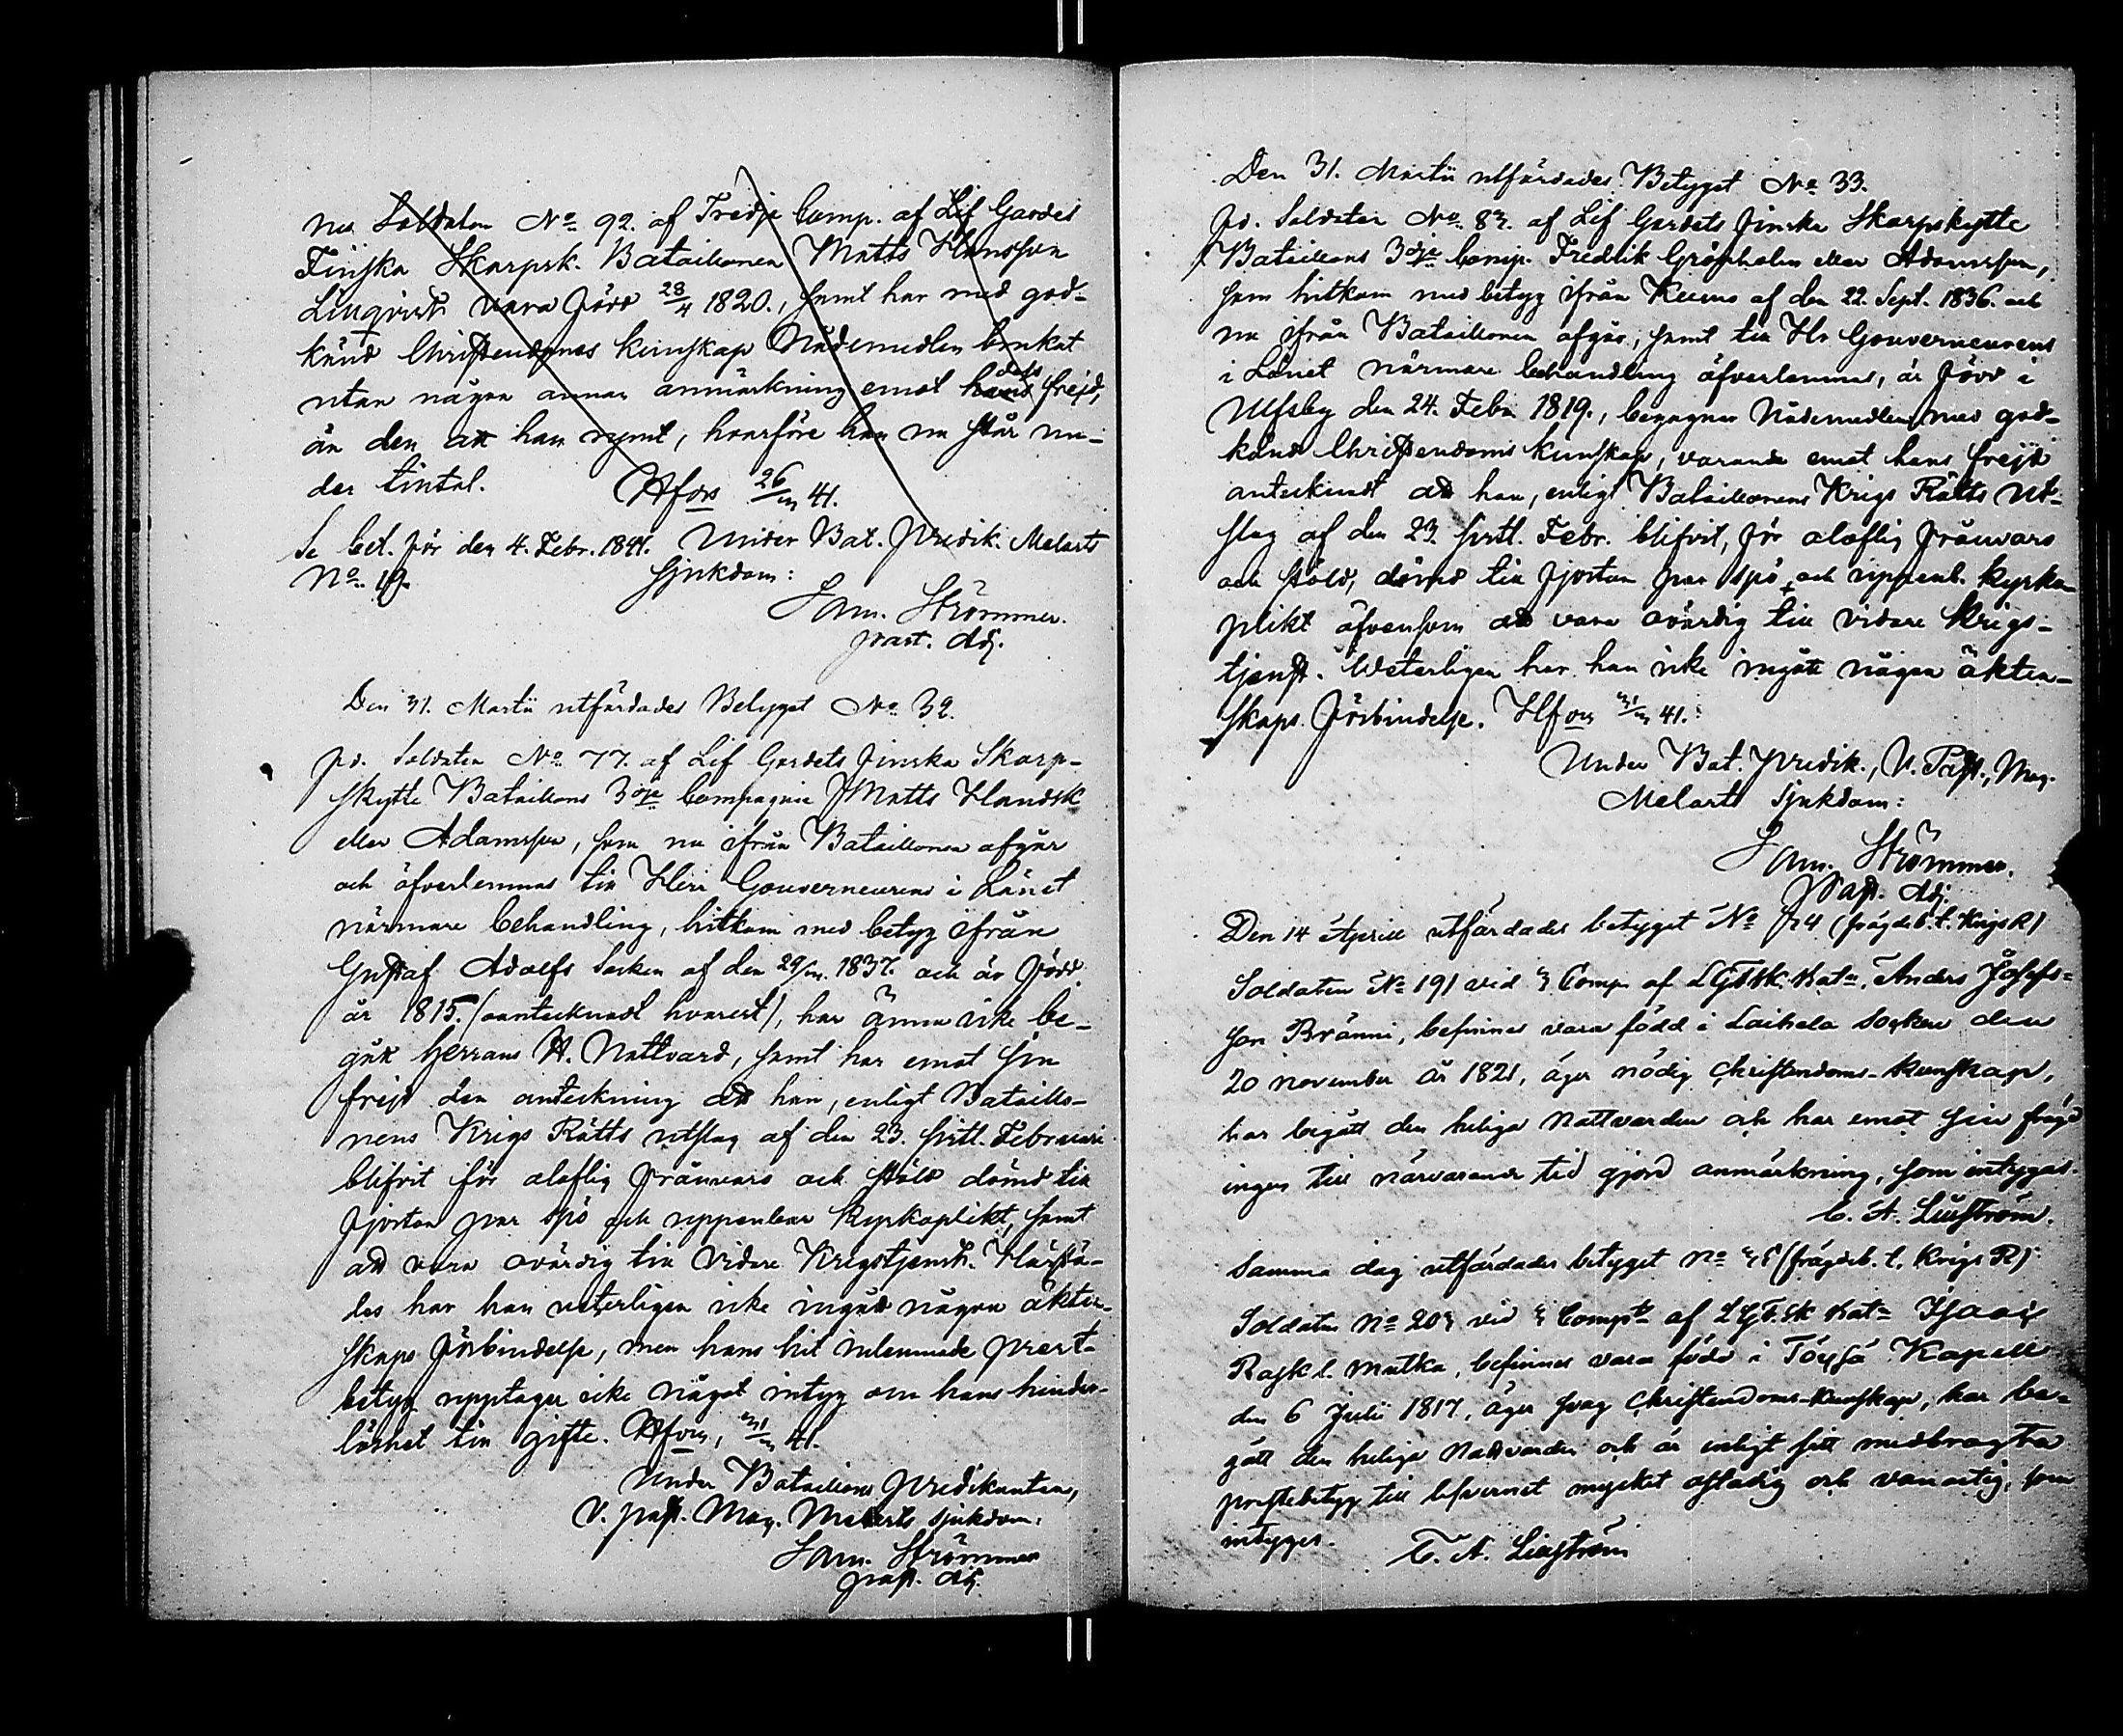 nu Soldaten No 92. af Tredje Comp. af Lif Gardes
Finska Skarpsk. Bataillonen Matts Hansson
Linqvist vara född 28/4 1820., samt har med god-
känd Christendoms kunskap Nådemedlen brukat
utan någon annan anmärkning emot hans dess frejd,
än den att han rymt, hvarföre han nu står un-
der tiltal. Hfors 26/3 41.
Se bet. för den 4. Febr. 1841. Under Bat. Predik. Melarts
No. 19. sjukdom:
Sam. Strömmer.
past. Adj.
Den 31. Martii utfärdades Betyget No. 32.
fd. Soldaten No. 77. af Lif Gardets finska Skarp-
skytte Bataillons 3dje Compagnie Matts Handsk
eller Adamsson, som nu ifrån Bataillonen afgår
och öfverlemnas till Herr Gouverneurens i Länet
närmare behandling, hitkom med betyg ifrån
Gustaf Adolfs Socken af den 29/3. 1837. och är född
år 1815. (oantecknadt hvarest), har ännu icke be-
gått Herrans H. Nattvard, samt har emot sin
frejd den anteckning att han, enligt Bataillo-
nens Krigs Rätts utslag af den 23. sistl. Februari
blifvit för oloflig frånvaro och stöld dömd till
fjorton par spö och uppenbar kyrkoplikt, samt
att vara ovärdig till vidare Krigstjenst. Härstä-
des har han veterligen icke ingått någon äkten-
skaps förbindelse, men hans hit inlemnade prest-
betyg upptager icke något intyg om hans hinder-
löshet till gifte. Hfors, 31/3 41.
Under Bataillons Predikanten,
V. past. Mag. Melarts sjukdom:
Sam. Strömmer
past. Adj.
Den 31. Martii utfärdades Betyget No. 33.
fd. Soldaten No. 83. af Lif Gardets finska Skarpskytte
Bataillons 3dje Comp. Fredrik Grönholm eller Adamsson,
som hitkom med betyg ifrån Keuru af den 22. Sept. 1836. och
nu ifrån Bataillonen afgår, samt till Hr Gouverneurens
i Länet närmare behandling öfverlemnas, är född i
Ulfsby den 24. Febr. 1819., begagnar Nådemedlen med god-
känd Christendoms kunskap, varande emot hans frejd
antecknadt att han, enligt Bataillonens Krigs Rätts Ut-
slag af den 23. sistl. Febr. blifvit, för oloflig frånvaro
och stöld, dömd till fjorton par spö och uppenb. kyrko-
plikt äfvensom att vara ovärdig till vidare Krigs-
tjenst. Weterligen har han icke ingått någon äkten-
skaps förbindelse. Hfors 31/3 41.
Under Bat. predik., V. Past., Mag.
Melarts sjukdom:
Sam. Strömmer.
Past. Adj.
Den 14 Aprill utfärdades betyget No 34 (frägdeb. t. Krigs R)
Soldaten No 191 vid 3 Comp af LGFSk. Batn. Anders Josefs-
son Bränni, befinnes vara född i Laihela Socken den
20 november år 1821, äger nödig Christendoms-kunskap,
har begått den heliga Nattvarden och har emot sin frägd
ingen till närvarande tid gjord anmärkning, som intygas.
C. A. Liuström.
Samma dag utfärdades betyget No 35 (frägdeb. t. Krigs R)
Soldaten No 203 vid 3 Compt af LGFSk Batn Isaac
Rask l. Matka, befinnes vara född i Töysä Kapell
den 6 Julii 1817, äger svag Christendoms-Kunskap, har be-
gått den heliga Nattvarden och är enligt sitt medbragta
prestbetyg till lefvernet mycket ostadig och vanartig, som
intygas. C. A. Liuström